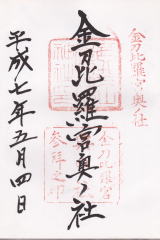 金刀比羅宮奥ノ社
金刀比羅宮奥社
金刀比羅宮
参拝之印
平成七年五月四日